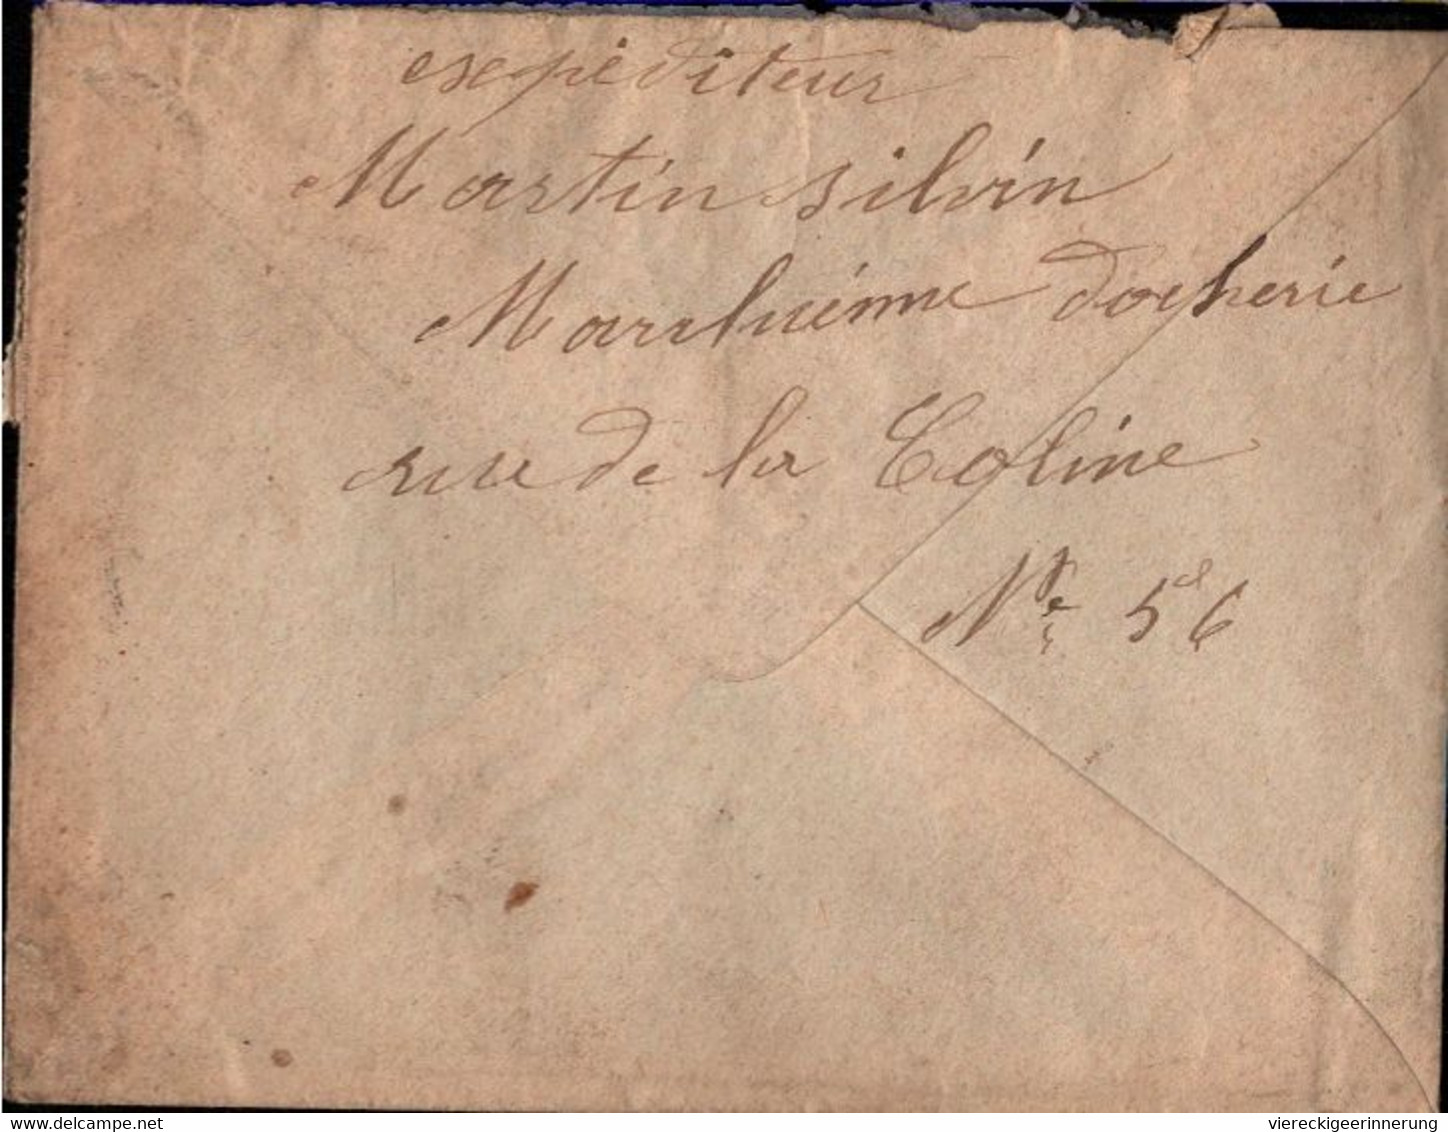 expéditeur
Martin silvin
Marchienne docherie
rue de la Coline
No 56
viereckigeerinnerung
delcampe.net